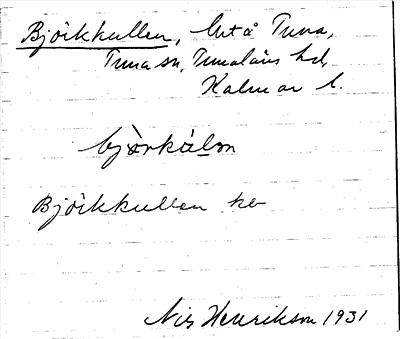 Björkkullen, but å Tuna,
Tuna sn, Tunaläns hd,
Kalmar l.
bjò̀rkàlən
Björkkullen kb
Nils Henrikson 1931